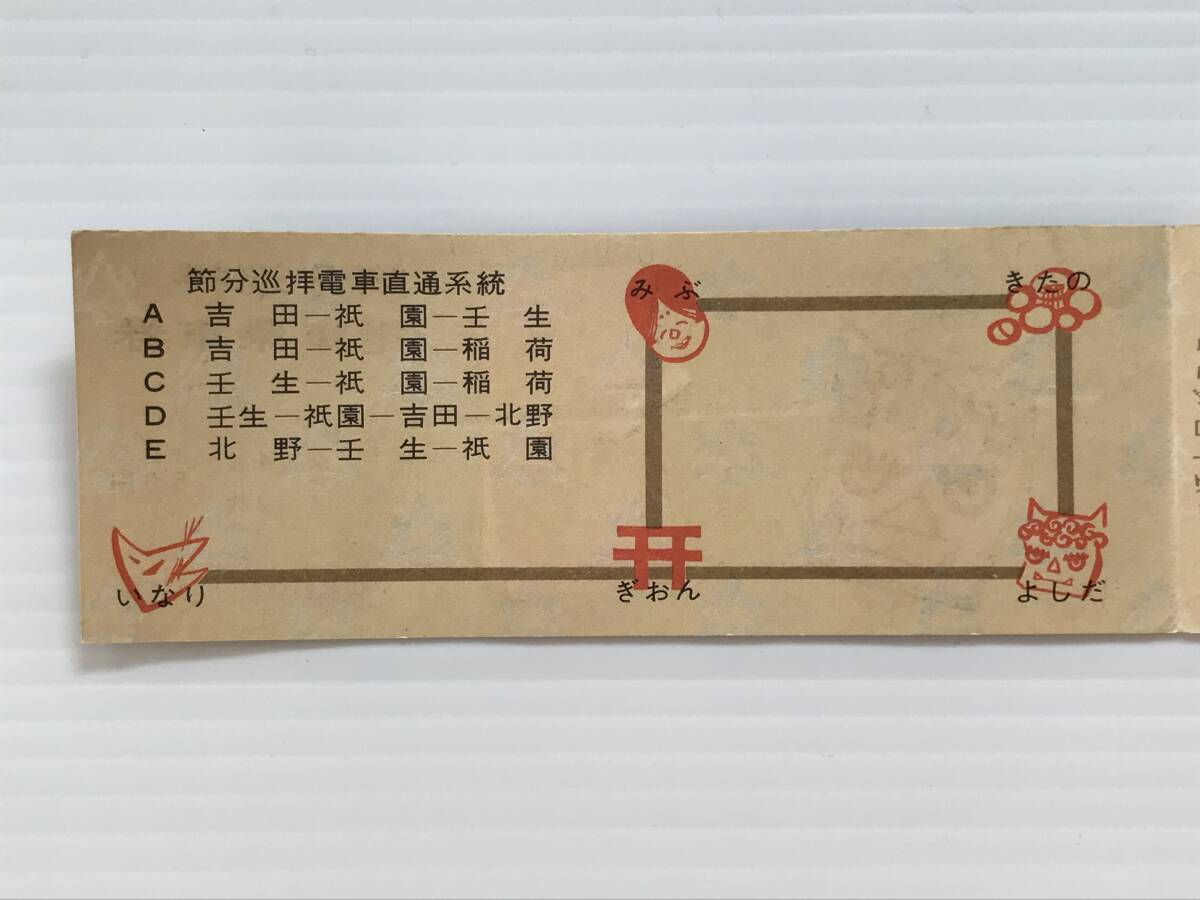 節分巡拝電車直通系統
A 吉田―祇園―壬生
B 吉田―祇園―稲荷
C 壬生―祇園―稲荷
D 壬生―祇園―吉田―北野
E 北野―壬生―祇園
みぶ
きたの
いなり
ぎおん
よしだ